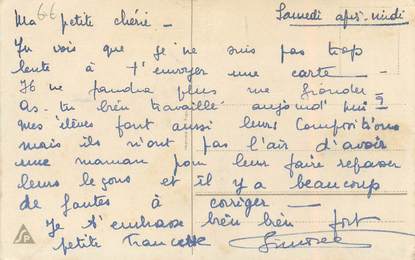 Samedi après-midi
Ma petite chérie -
Tu vois que je ne suis pas trop
lente à t'envoyer une carte -
Il ne faudra plus me gronder
As-tu bien travaillé aujourd'hui ?
mes élèves font aussi leurs Compositions
mais ils n'ont pas l'air d'avoir
une maman pour leur faire repasser
leurs leçons et il y a beaucoup
de fautes à corriger -
Je t'embrasse bien bien fort
petite